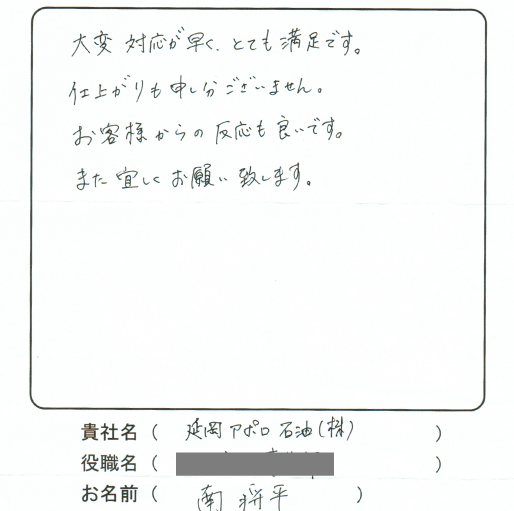 大変 対応が早く、とても満足です。
仕上がりも申し分ございません。
お客様からの反応も良いです。
また宜しくお願い致します。
貴社名（ 延岡アポロ石油(株) ）
役職名（ ）
お名前（ 南 将平 ）